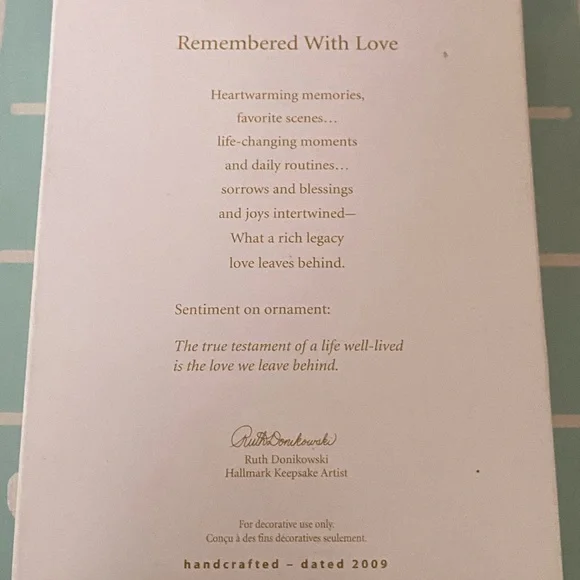 Remembered With Love
Heartwarming memories,
favorite scenes...
life-changing moments
and daily routines...
sorrows and blessings
and joys intertwined—
What a rich legacy
love leaves behind.
Sentiment on ornament:
The true testament of a life well-lived
is the love we leave behind.
Ruth Donikowski
Ruth Donikowski
Hallmark Keepsake Artist
For decorative use only.
Conçu à des fins décoratives seulement.
handcrafted – dated 2009